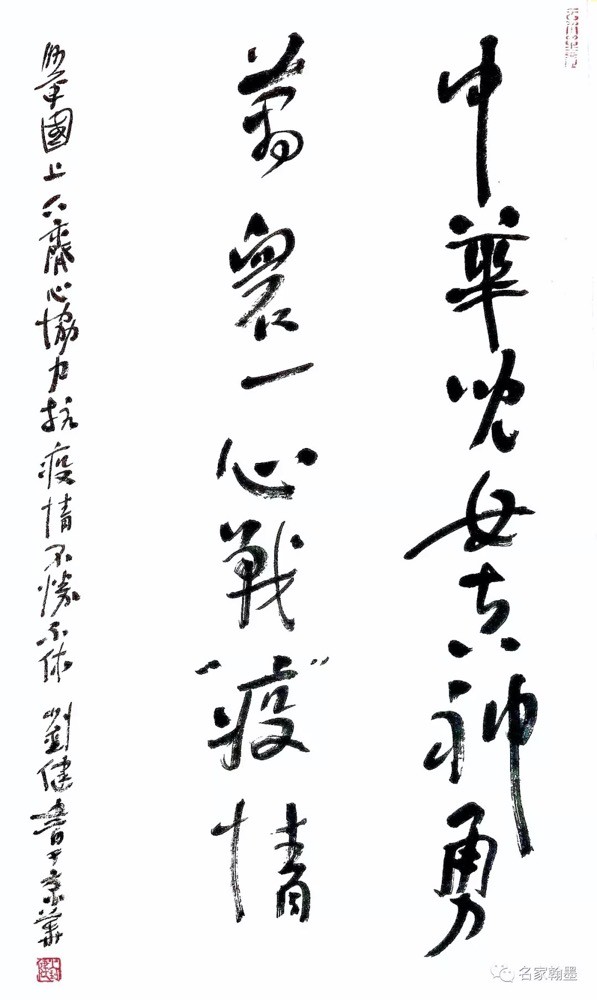 中華兒女真神勇
萬眾一心戰"疫"情
舉國上下齊心協力抗疫情不勝不休 劉健書于京華
名家翰墨